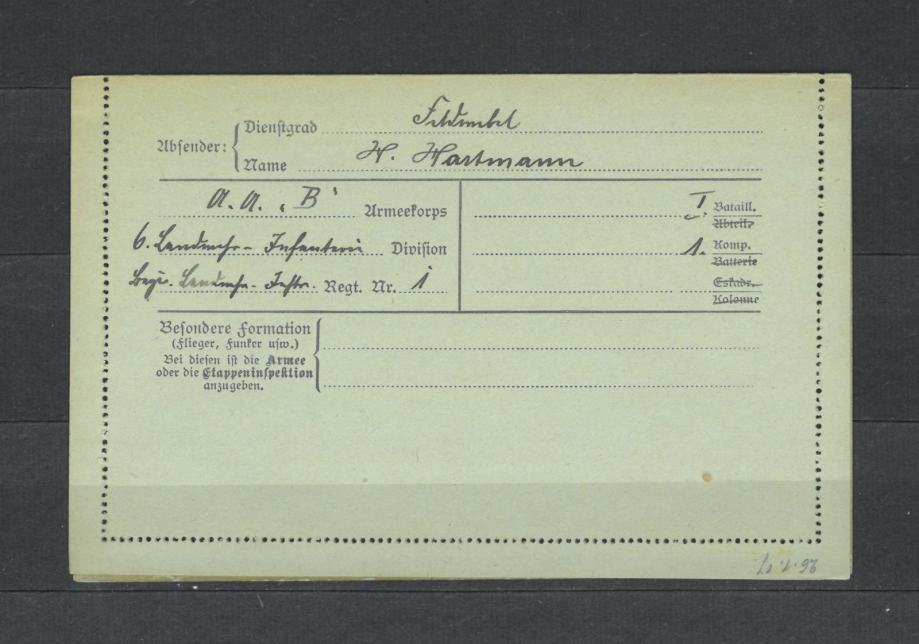 Absender:
Dienstgrad Feldwebel
Name H. Hartmann
A. A. "B" Armeekorps
I. Bataill.
Abteil.
6. Landwehr-Infanterie Division
1. Komp.
Batterie
Bayr. Landwehr-Inftr. Regt. Nr. 1
Eskadr.
Kolonne
Besondere Formation
(Flieger, Funker usw.)
Bei diesen ist die Armee
oder die Etappeninspektion
anzugeben.